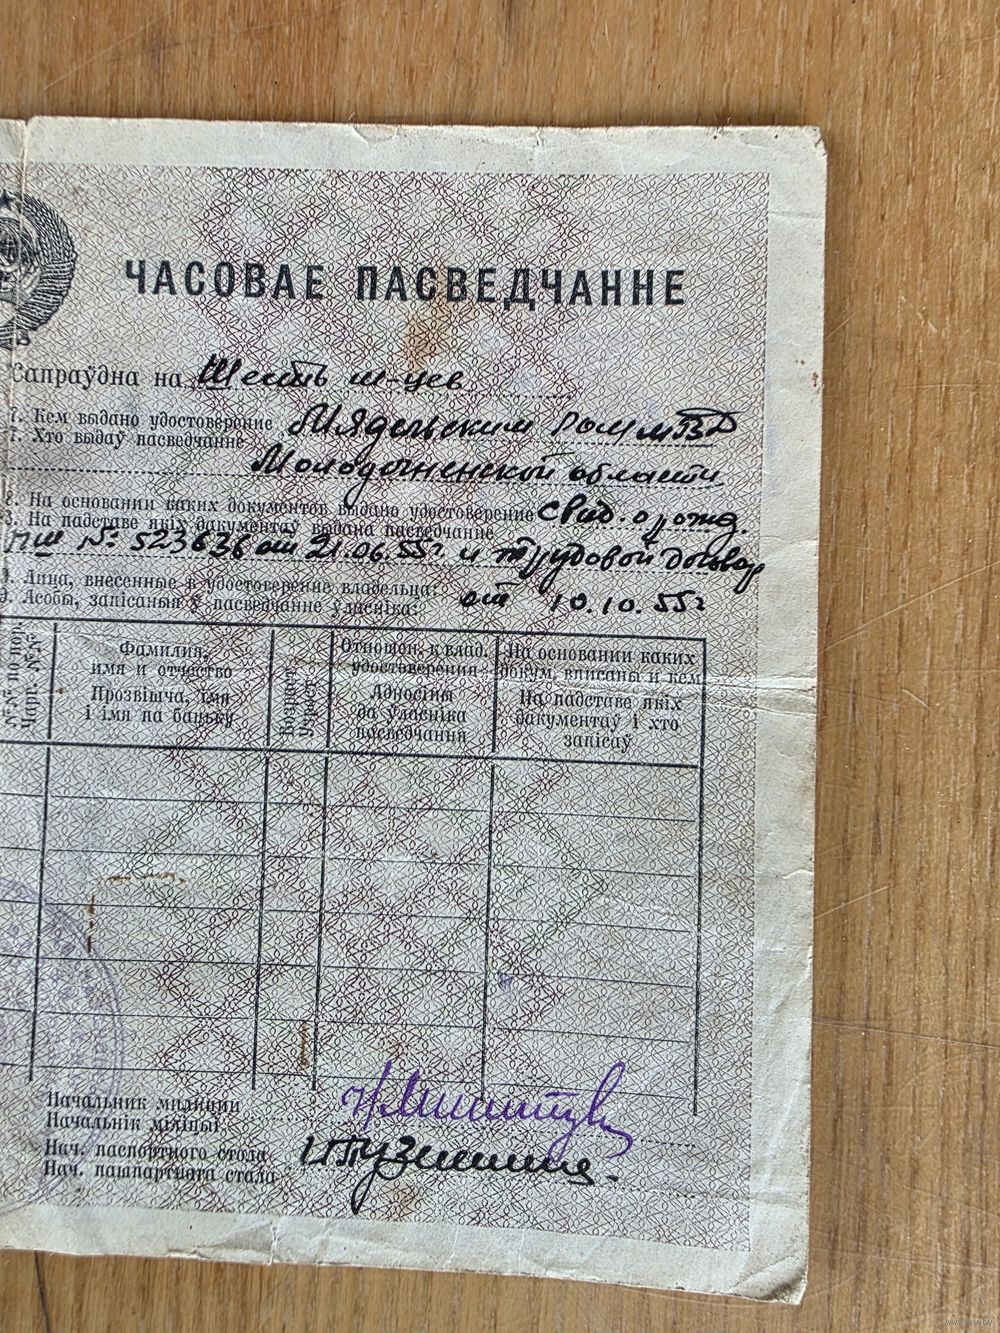 ЧАСОВАЕ ПАСВЕДЧАННЕ
Сапраўдна на Шесть м-цев
7. Кем выдано удостоверение Мядельским РОМ МВД
7. Хто выдаў пасведчанне
Молодечненской области
8. На основании каких документов выдано удостоверение свид. о рожд.
8. На падставе якіх дакументаў выдана пасведчанне
ПШ № 523636 от 21.06.55г и трудовой договор
9. Лица, внесенные в удостоверение владельца:
9. Асобы, запісаныя ў пасведчанне ўласніка: от 10.10.55г
№№ по пор.
Чарг. №№
Фамилия,
имя и отчество
Прозвішча, імя
і імя па бацьку
Возраст
Узрост
Отношен. к влад.
удостоверения
Адносіны
да ўласніка
пасведчання
На основании каких
докум. вписаны и кем
На падставе якіх
дакументаў і хто
запісаў
Начальник милиции
Начальнік міліцыі
Нач. паспортного стола
Нач. пашпартнага стала